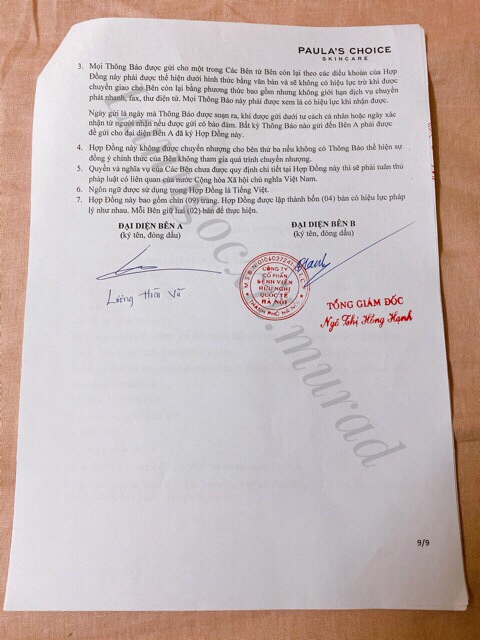 PAULA'S CHOICE
SKINCARE
3. Mọi Thông Báo được gửi cho một trong Các Bên từ Bên còn lại theo các điều khoản của Hợp
Đồng này phải được thể hiện dưới hình thức bằng văn bản và sẽ không có hiệu lực trừ khi được
chuyển giao cho Bên còn lại bằng phương thức bao gồm nhưng không giới hạn dịch vụ chuyển
phát nhanh, fax, thư điện tử. Mọi Thông Báo này phải được xem là có hiệu lực khi nhận được.
Ngày gửi là ngày mà Thông Báo được soạn ra, khi được gửi dưới tư cách cá nhân hoặc ngày xác
nhận từ người nhận nếu được gửi có bảo đảm. Bất kỳ Thông Báo nào gửi đến Bên A phải được
đề gửi cho đại diện Bên A đã ký Hợp Đồng này.
4. Hợp Đồng này không được chuyển nhượng cho bên thứ ba nếu không có Thông Báo thể hiện sự
đồng ý chính thức của Bên không tham gia quá trình chuyển nhượng.
5. Quyền và nghĩa vụ của Các Bên chưa được quy định chi tiết tại Hợp Đồng này thì sẽ phải tuân thủ
pháp luật có liên quan của nước Cộng hòa Xã hội chủ nghĩa Việt Nam.
6. Ngôn ngữ được sử dụng trong Hợp Đồng là Tiếng Việt.
7. Hợp Đồng này bao gồm chín (09) trang. Hợp Đồng được lập thành bốn (04) bản có hiệu lực pháp
lý như nhau. Mỗi Bên giữ hai (02) bản để thực hiện.
ĐẠI DIỆN BÊN A
(ký tên, đóng dấu)
ĐẠI DIỆN BÊN B
(ký tên, đóng dấu)
CÔNG TY
CỔ PHẦN
BỆNH VIỆN
HỮU NGHỊ
QUỐC TẾ
HÀ NỘI
TỔNG GIÁM ĐỐC
Ngô Thị Hồng Hạnh
murad
9/9